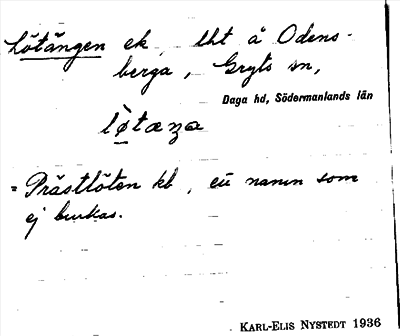 Lötängen ek, tht å Odens-
berga, Gryts sn,
Daga hd, Södermanlands län
lø̀tæŋa
= Prästlöten kb, eü namn som
ej brukas.
KARL-ELIS NYSTEDT 1936